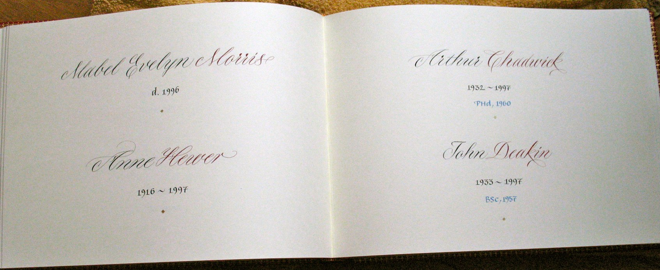 Mabel Evelyn Morris
d. 1996
Anne Hewer
1916 ~ 1997
Arthur Chadwick
1932 ~ 1997
PHd, 1960
John Deakin
1933 ~ 1997
BSc, 1957